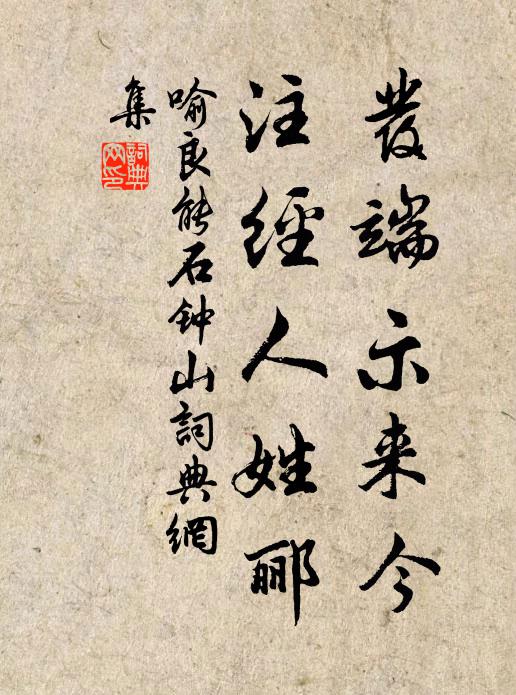 發端示来今
注經人姓郦
喻良能石钟山詞典網
集
詞典網印